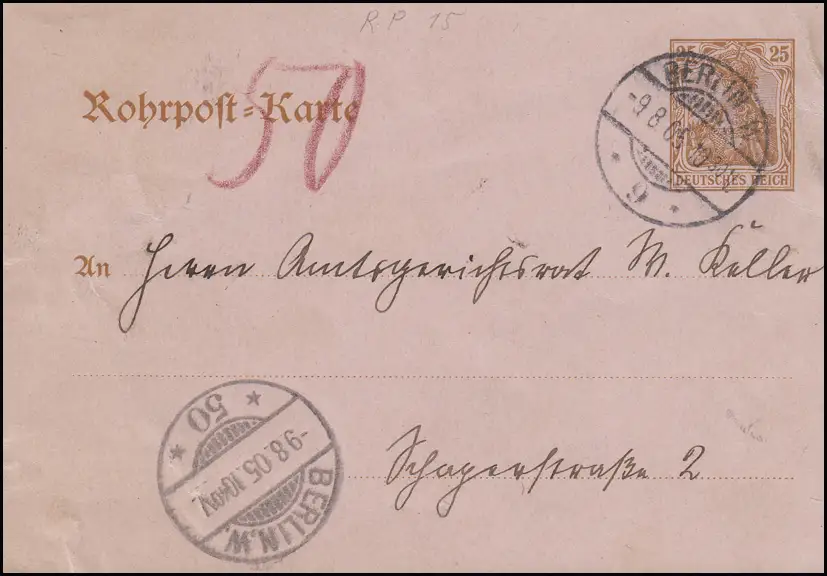 R.P 15
50
Rohrpost-Karte
25 25
DEUTSCHES REICH
BERLIN
-9.8.05.10
9
An Herrn Amtsgerichtsrat W. Keller
Schaperstraße 2
50
-9.8.05.10
BERLIN.W.